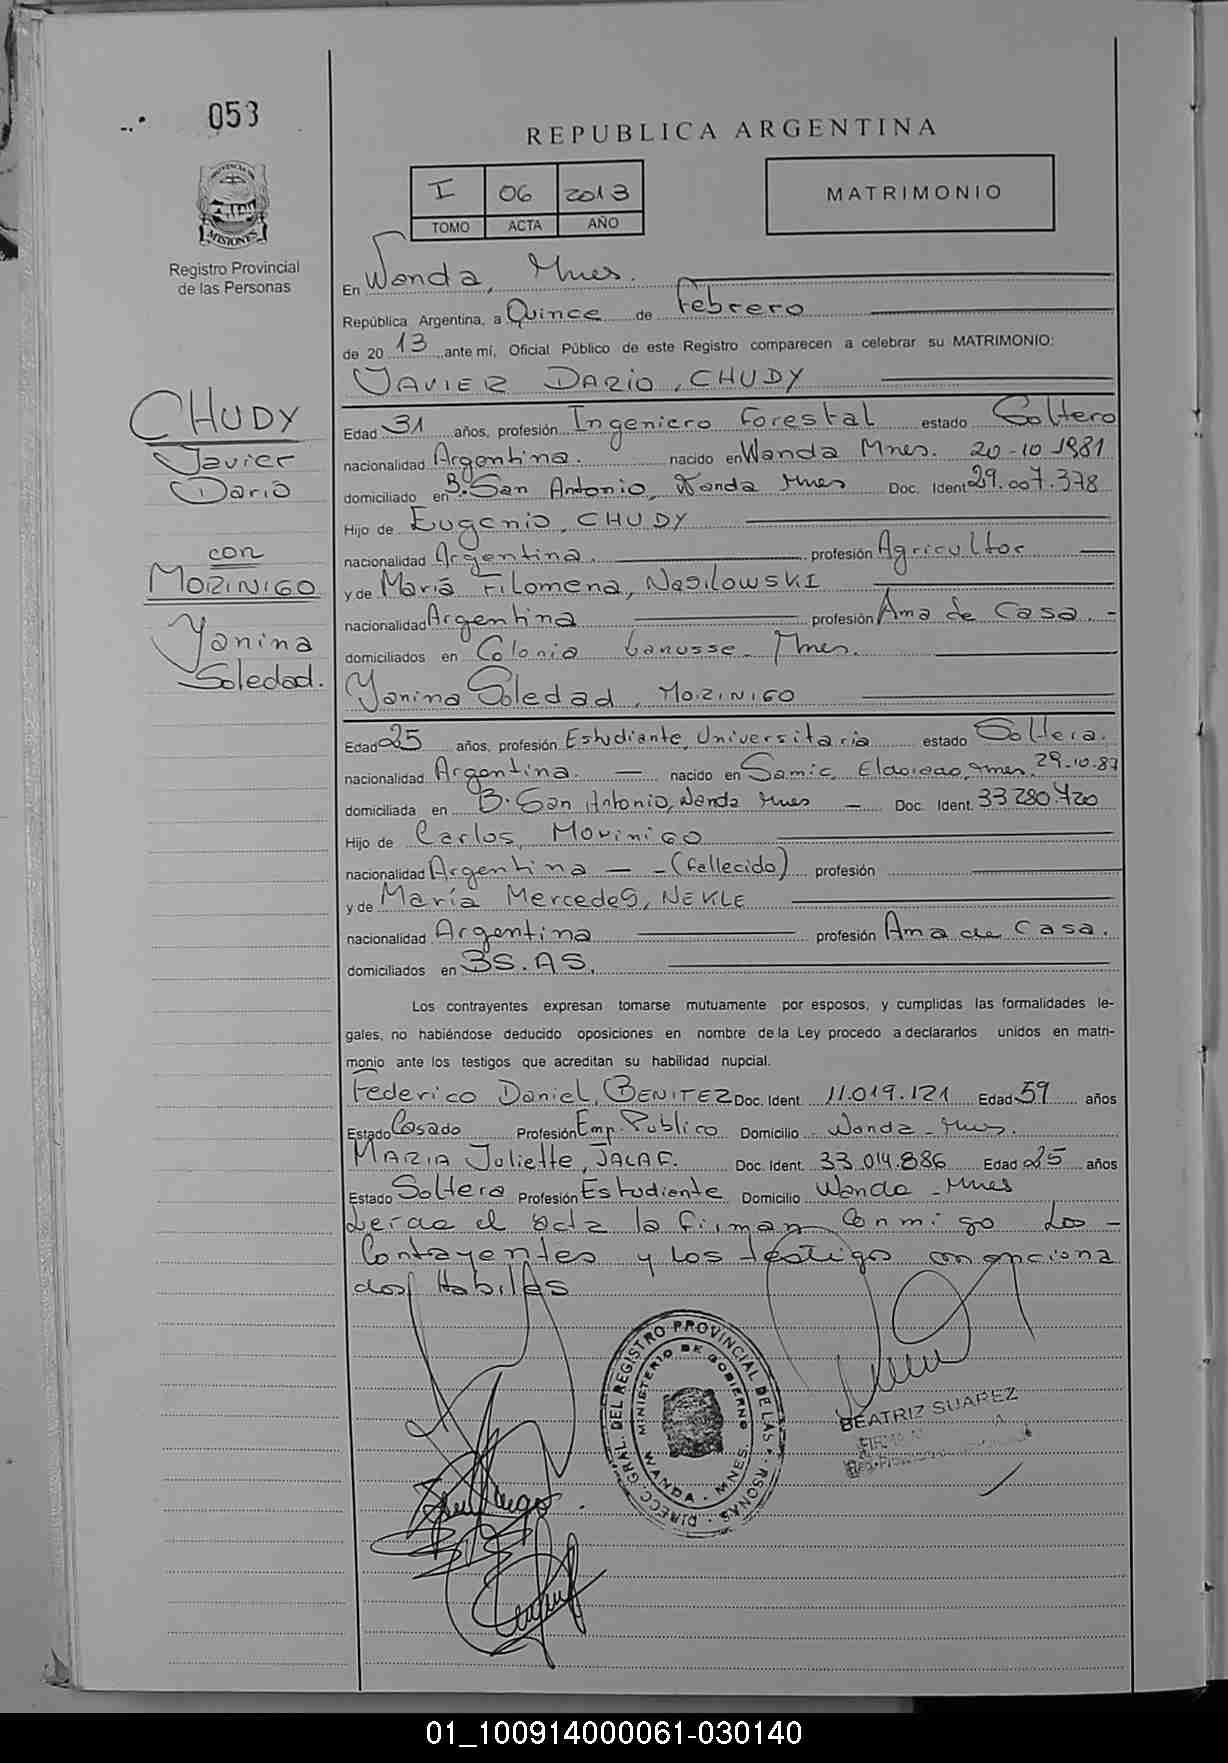 053
REPUBLICA ARGENTINA
I 06 2013
TOMO ACTA AÑO
MATRIMONIO
PROVINCIA DE
MISIONES
Registro Provincial
de las Personas
En Wanda, Mnes.
República Argentina, a Quince de Febrero
de 20 13 ante mí, Oficial Público de este Registro comparecen a celebrar su MATRIMONIO:
JAVIER DARIO, CHUDY
CHUDY
Javier
Dario
con
MORINIGO
Yanina
Soledad.
Edad 31 años, profesión Ingeniero Forestal estado Soltero
nacionalidad Argentina. nacido en Wanda Mnes. 20-10-1981
domiciliado en B. San Antonio, Wanda Mnes Doc. Ident 29.007.378
Hijo de Eugenio, CHUDY
nacionalidad Argentina. profesión Agricultor
y de María Filomena, WASILOWSKI
nacionalidad Argentina profesión Ama de Casa. -
domiciliados en Colonia Lanusse. Mnes.
Yanina Soledad, MORINIGO
Edad 25 años, profesión Estudiante, Universitaria estado Soltera.
nacionalidad Argentina. nacido en Samic, Eldorado, Mnes. 29-10-87
domiciliada en B. San Antonio, Wanda Mnes Doc. Ident. 33 280.720
Hijo de Carlos, MORINIGO
nacionalidad Argentina - (Fallecido) profesión
y de María Mercedes, NEKLE
nacionalidad Argentina profesión Ama de Casa.
domiciliados en BS. AS.
Los contrayentes expresan tomarse mutuamente por esposos, y cumplidas las formalidades le-
gales, no habiéndose deducido oposiciones en nombre de la Ley procedo a declararlos unidos en matri-
monio ante los testigos que acreditan su habilidad nupcial.
Federico Daniel, BENITEZ Doc. Ident. 11.019.121 Edad 59 años
Estado Casado Profesión Emp. Publico Domicilio Wanda - Mnes.
MARIA Juliette, JALAF. Doc. Ident. 33.014.886 Edad 25 años
Estado Soltera Profesión Estudiante Domicilio Wanda - Mnes
el acta la firman Conmigo Los -
Contrayentes y los testigos
dos Habiles
DIRECC. GRAL. DEL REGISTRO PROVINCIAL DE LAS
MINISTERIO DE GOBIERNO
WANDA - MNES
BEATRIZ SUAREZ
01_100914000061-030140